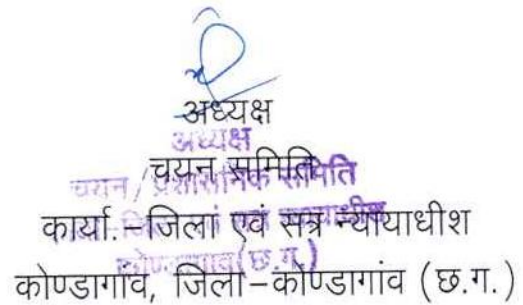 अध्यक्ष
अध्यक्ष
चयन समिति
चयन / प्रशासनिक समिति
कार्या.–जिला एवं सत्र न्यायाधीश
कोण्डागांव, जिला–कोण्डागांव (छ.ग.)
(छ.ग.)